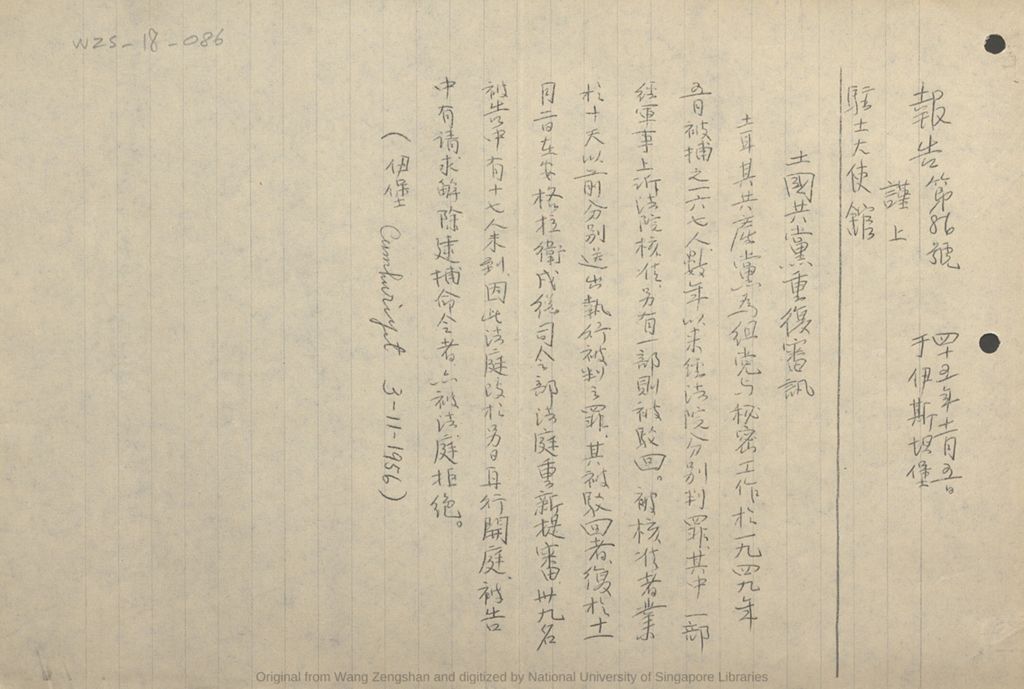 WZS-18-086
報告第86號
四十五年十一月五日
于伊斯坦堡
謹上
駐土大使館
土國共黨重復審訊
土耳其共產黨為組党与秘密工作於一九四九年
五月被捕之一六七人數年以來經法院分別判罪其中一部
經軍事上訴法院核准另有一部則被駁回。被核准者業
於十天以前分別送出執行被判之罪其被駁回者復於十一
月二日在安格拉衛戍總司令部法庭重新提審卅九名
被告中有十七人未到因此法庭改於另日再行開庭被告
中有请求解除逮捕命令者亦被法庭拒绝。
(伊堡 Cumhuriyet 3-11-1956)
Original from Wang Zengshan and digitized by National University of Singapore Libraries